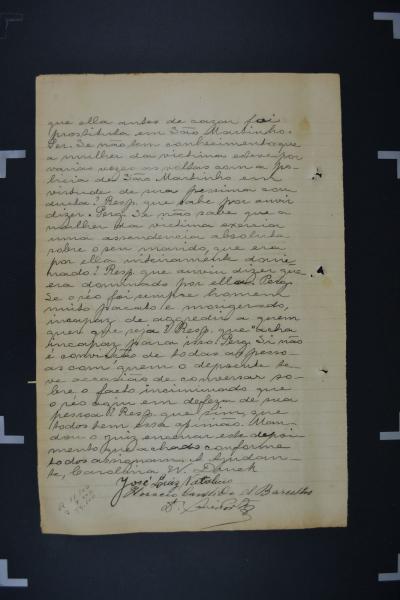 que ella antes de casar foi
prostituta em São Martinho.
Per. Se não tem conhecimento que
a mulher da victima esteve por
varias vezes as voltas com a po-
licia de São Martinho em
virtude de sua pessima con
ducta? Resp. que sabe por ouvir
dizer. Perg. Se não sabe que a
mulher da victima exercia
uma ascendencia absoluta
sobre o seu marido, que era
por ella inteiramente domi
nado? Resp. que ouviu dizer que
era dominado por ella. Perg.
Se o réo foi sempre homem
muito pacato e morigerado,
incapaz de aggredir a quem
quer que seja? Resp. que acha
incapaz para isso. Perg. Si não
é convicção de todas as pesso-
as com quem o depoente te-
ve occasião de conversar so-
bre o facto incriminado que
o réo agiu em defeza de sua
pessoa? Resp. que sim, que
todos tem essa opinião. Man-
dou o juiz encerrar este depoi-
mento que achado conforme
todos assignam. A Ajudan-
te, Carolina W. Dauek
José Luiz
Horacio Candido d Barcellos